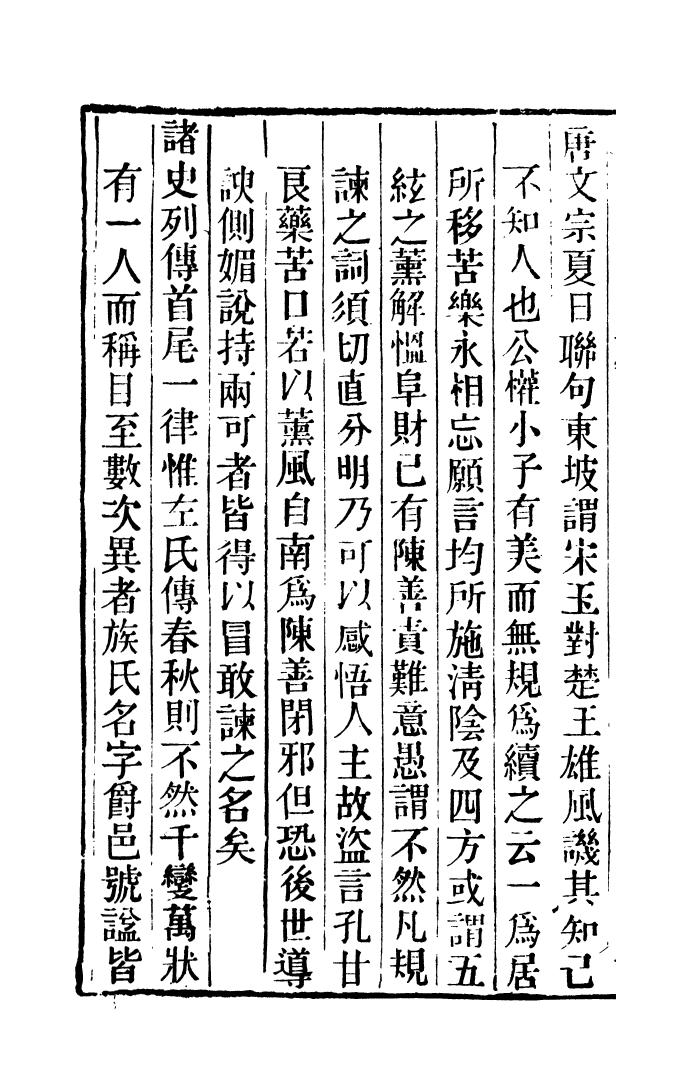 唐文宗夏日聯句東坡謂宋玉對楚王雄風譏其知己
不知人也公權小子有美而無規爲續之云一爲居
所移苦樂永相忘願言均所施淸陰及四方或謂五
絃之薰解慍阜財已有陳善責難意愚謂不然凡規
諫之詞須切直分明乃可以感悟人主故盜言孔甘
艮藥苦口若以薰風自南爲陳善閉邪但恐後世導
諛側媚說持兩可者皆得以冒敢諫之名矣
諸史列傳首尾一律惟左氏傳春秋則不然千變萬狀
有一人而稱目至數次異者族氏名字爵邑號諡皆